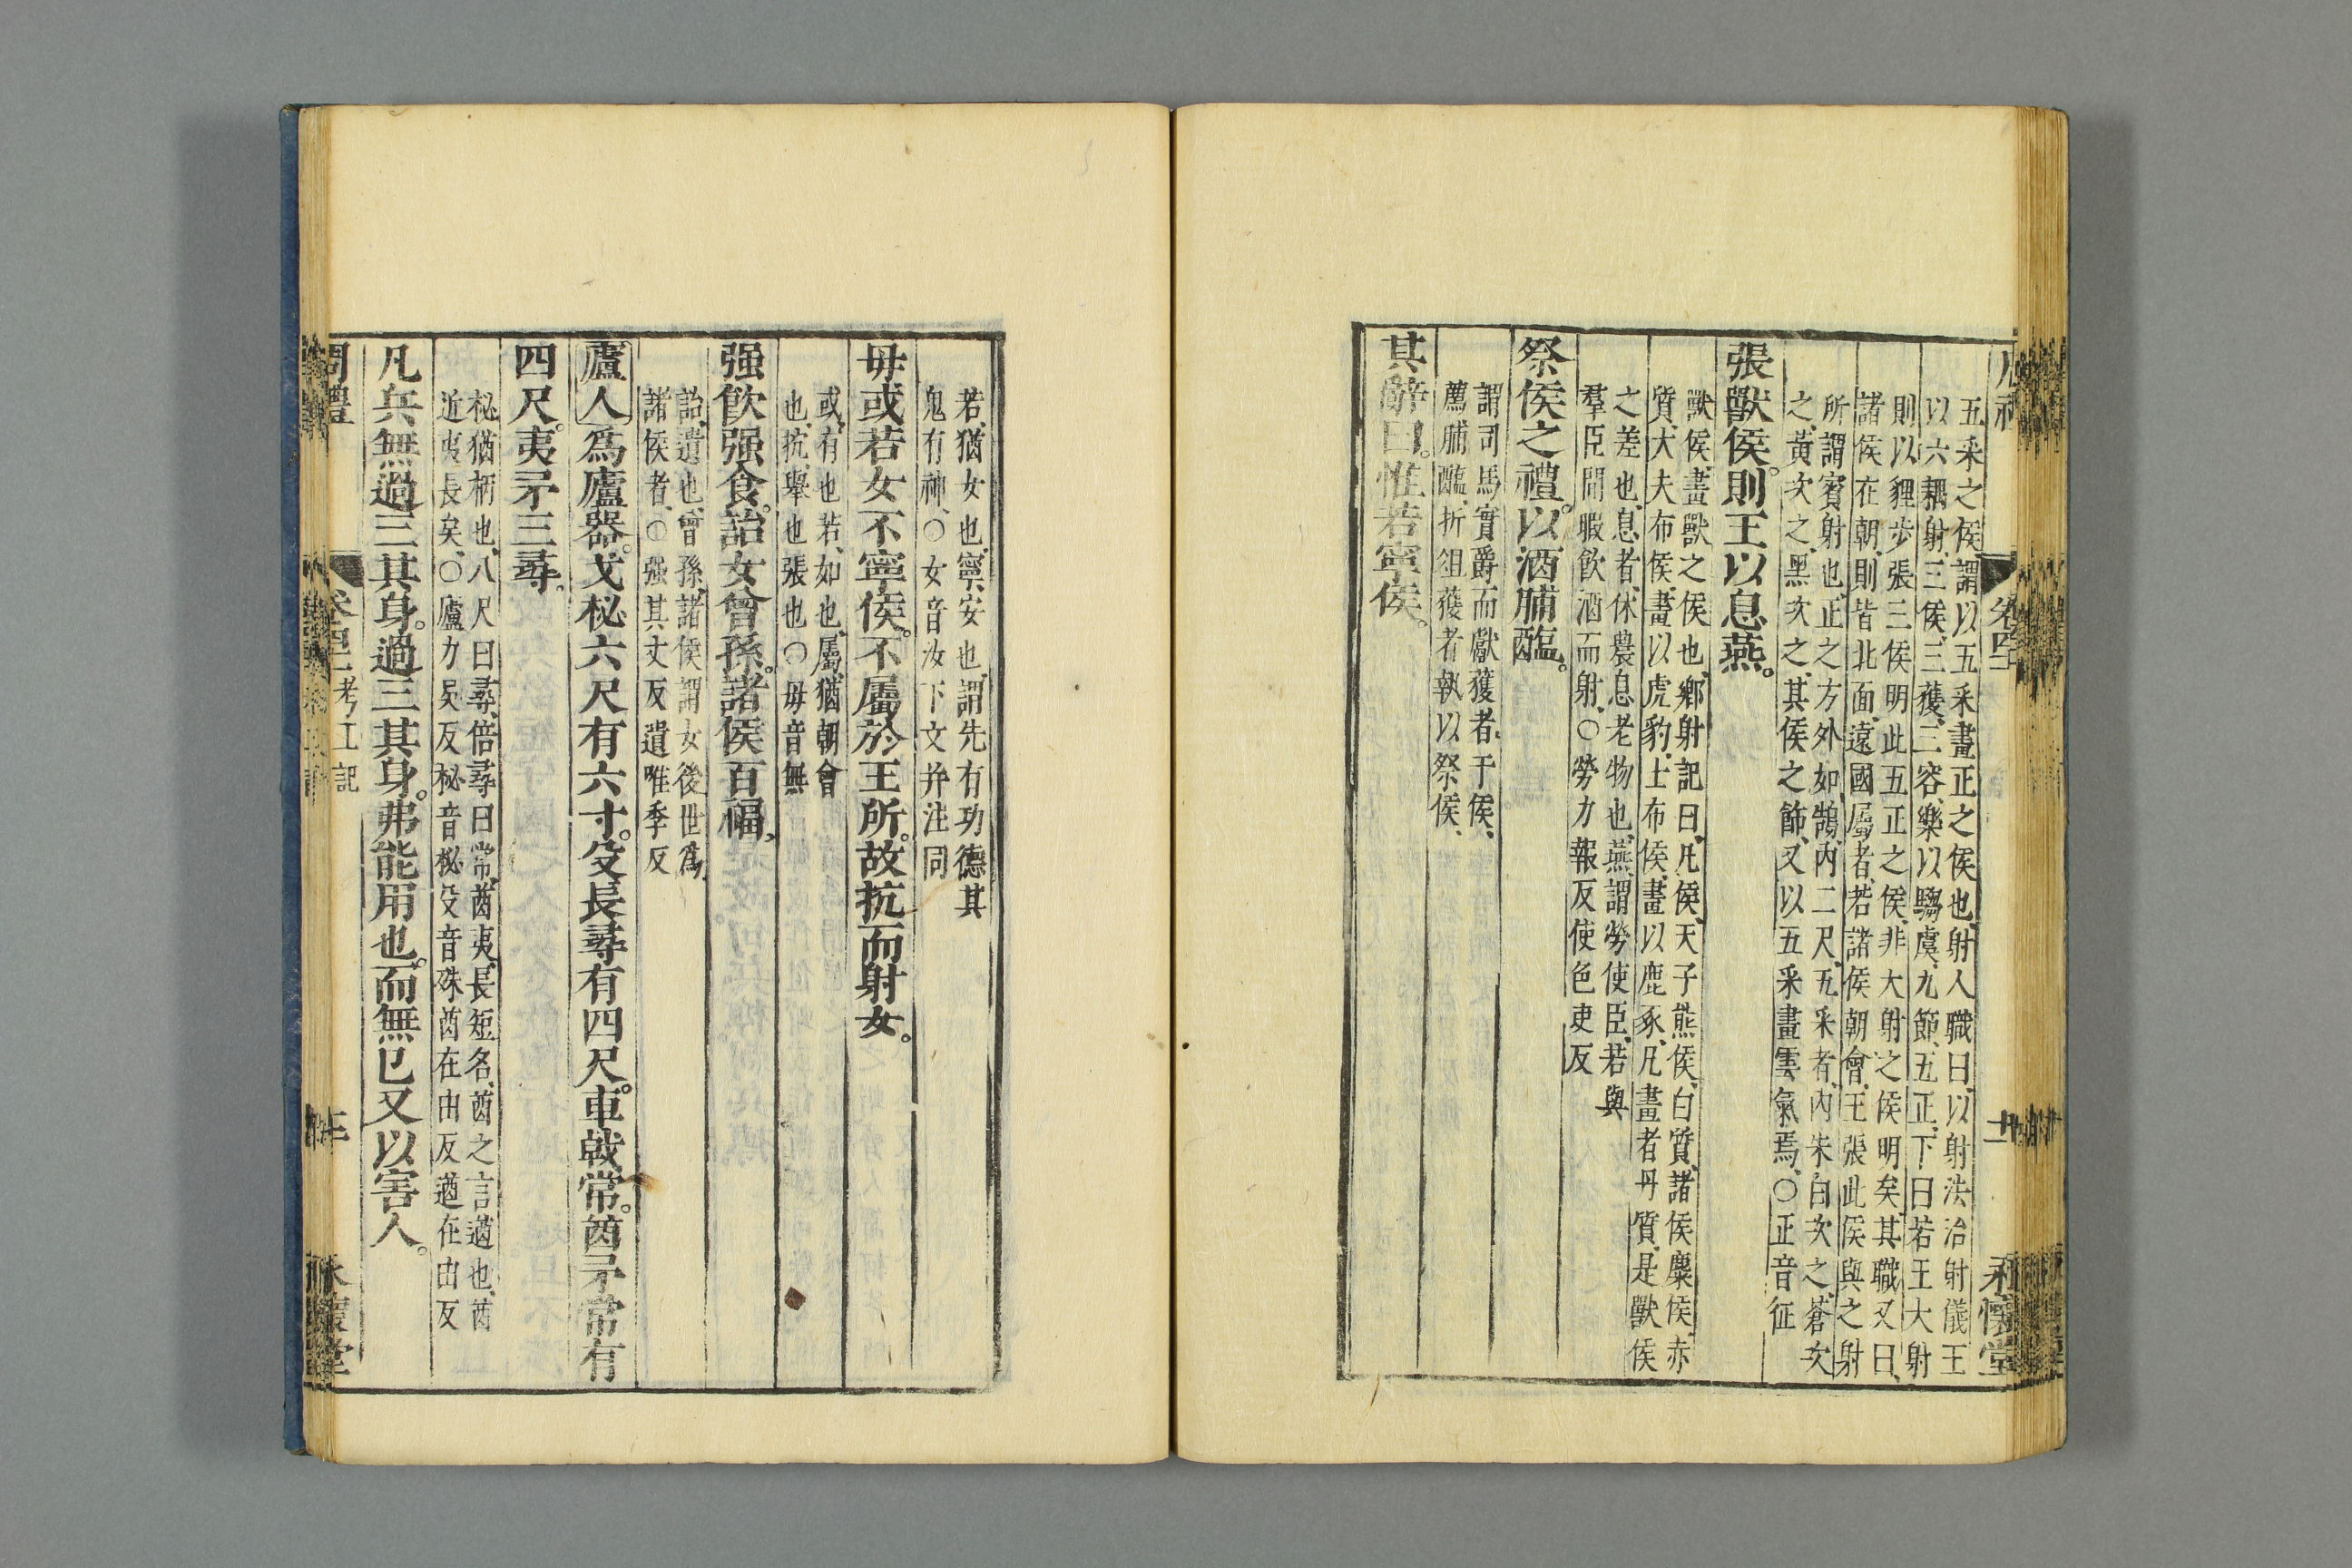 五采之侯謂以五采畫正之侯也、射人職曰、以射法治射儀王
以六耦射三侯、三獲三容、樂以騶虞九節、五正、下曰若王大射
則以貍步張三侯明此五正之侯、非大射之侯明矣、其職又曰、
諸侯在朝、則皆北面、遠國屬者、若諸侯朝會、王張此侯與之射
所謂賓射也、正之方外如鵠、內二尺、五采者、內朱、白次之、蒼次
之、黃次之、黑次之、其侯之飾、又以五采畫雲氣焉、○正音征
張獸侯。則王以息燕。
獸侯、畫獸之侯也、鄉射記曰、凡侯、天子熊侯、白質、諸侯麋侯、赤
質、大夫布侯、畫以虎豹、士布侯、畫以鹿豕、凡畫者丹質、是獸侯
之差也、息者、休農息老物也、燕、謂勞使臣、若與
羣臣閒暇飮酒而射、○勞力報反使色吏反
祭侯之禮。以酒脯醢。
謂司馬實爵而獻獲者、于侯、
薦脯醢、折俎、獲者執以祭侯、
其辭曰。惟若寧侯。
若、猶女也、寧、安也、謂先有功德其
鬼有神、○女音汝下文并注同
毋或若女不寧侯。不屬於王所。故抗而射女。
或、有也、若、如也、屬、猶朝會
也、抗、舉也、張也、○毋音無
强飮强食。詒女曾孫。諸侯百福。
詒、遺也、曾孫、諸侯、謂女後世爲
諸侯者、○强其丈反遺唯季反
廬人爲廬器。戈柲六尺有六寸。殳長尋有四尺。車戟常。酋矛常有
四尺。夷矛三尋。
柲、猶柄也、八尺曰尋、倍尋曰常、酋夷、長短名、酋之言遒也、酋
近夷長矣、○廬力吳反柲音祕殳音殊酋在由反遒在由反
凡兵無過三其身。過三其身。弗能用也。而無已又以害人。
周禮 卷四二 考工記 永懷堂